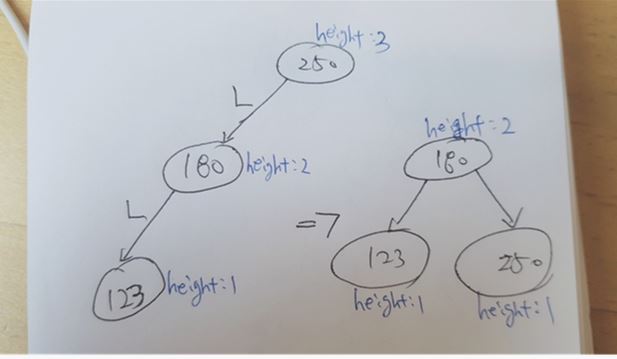 height:3
250
L
180 height:2
L
123 height:1
=7
height:2
180
123
height:1
250
height:1